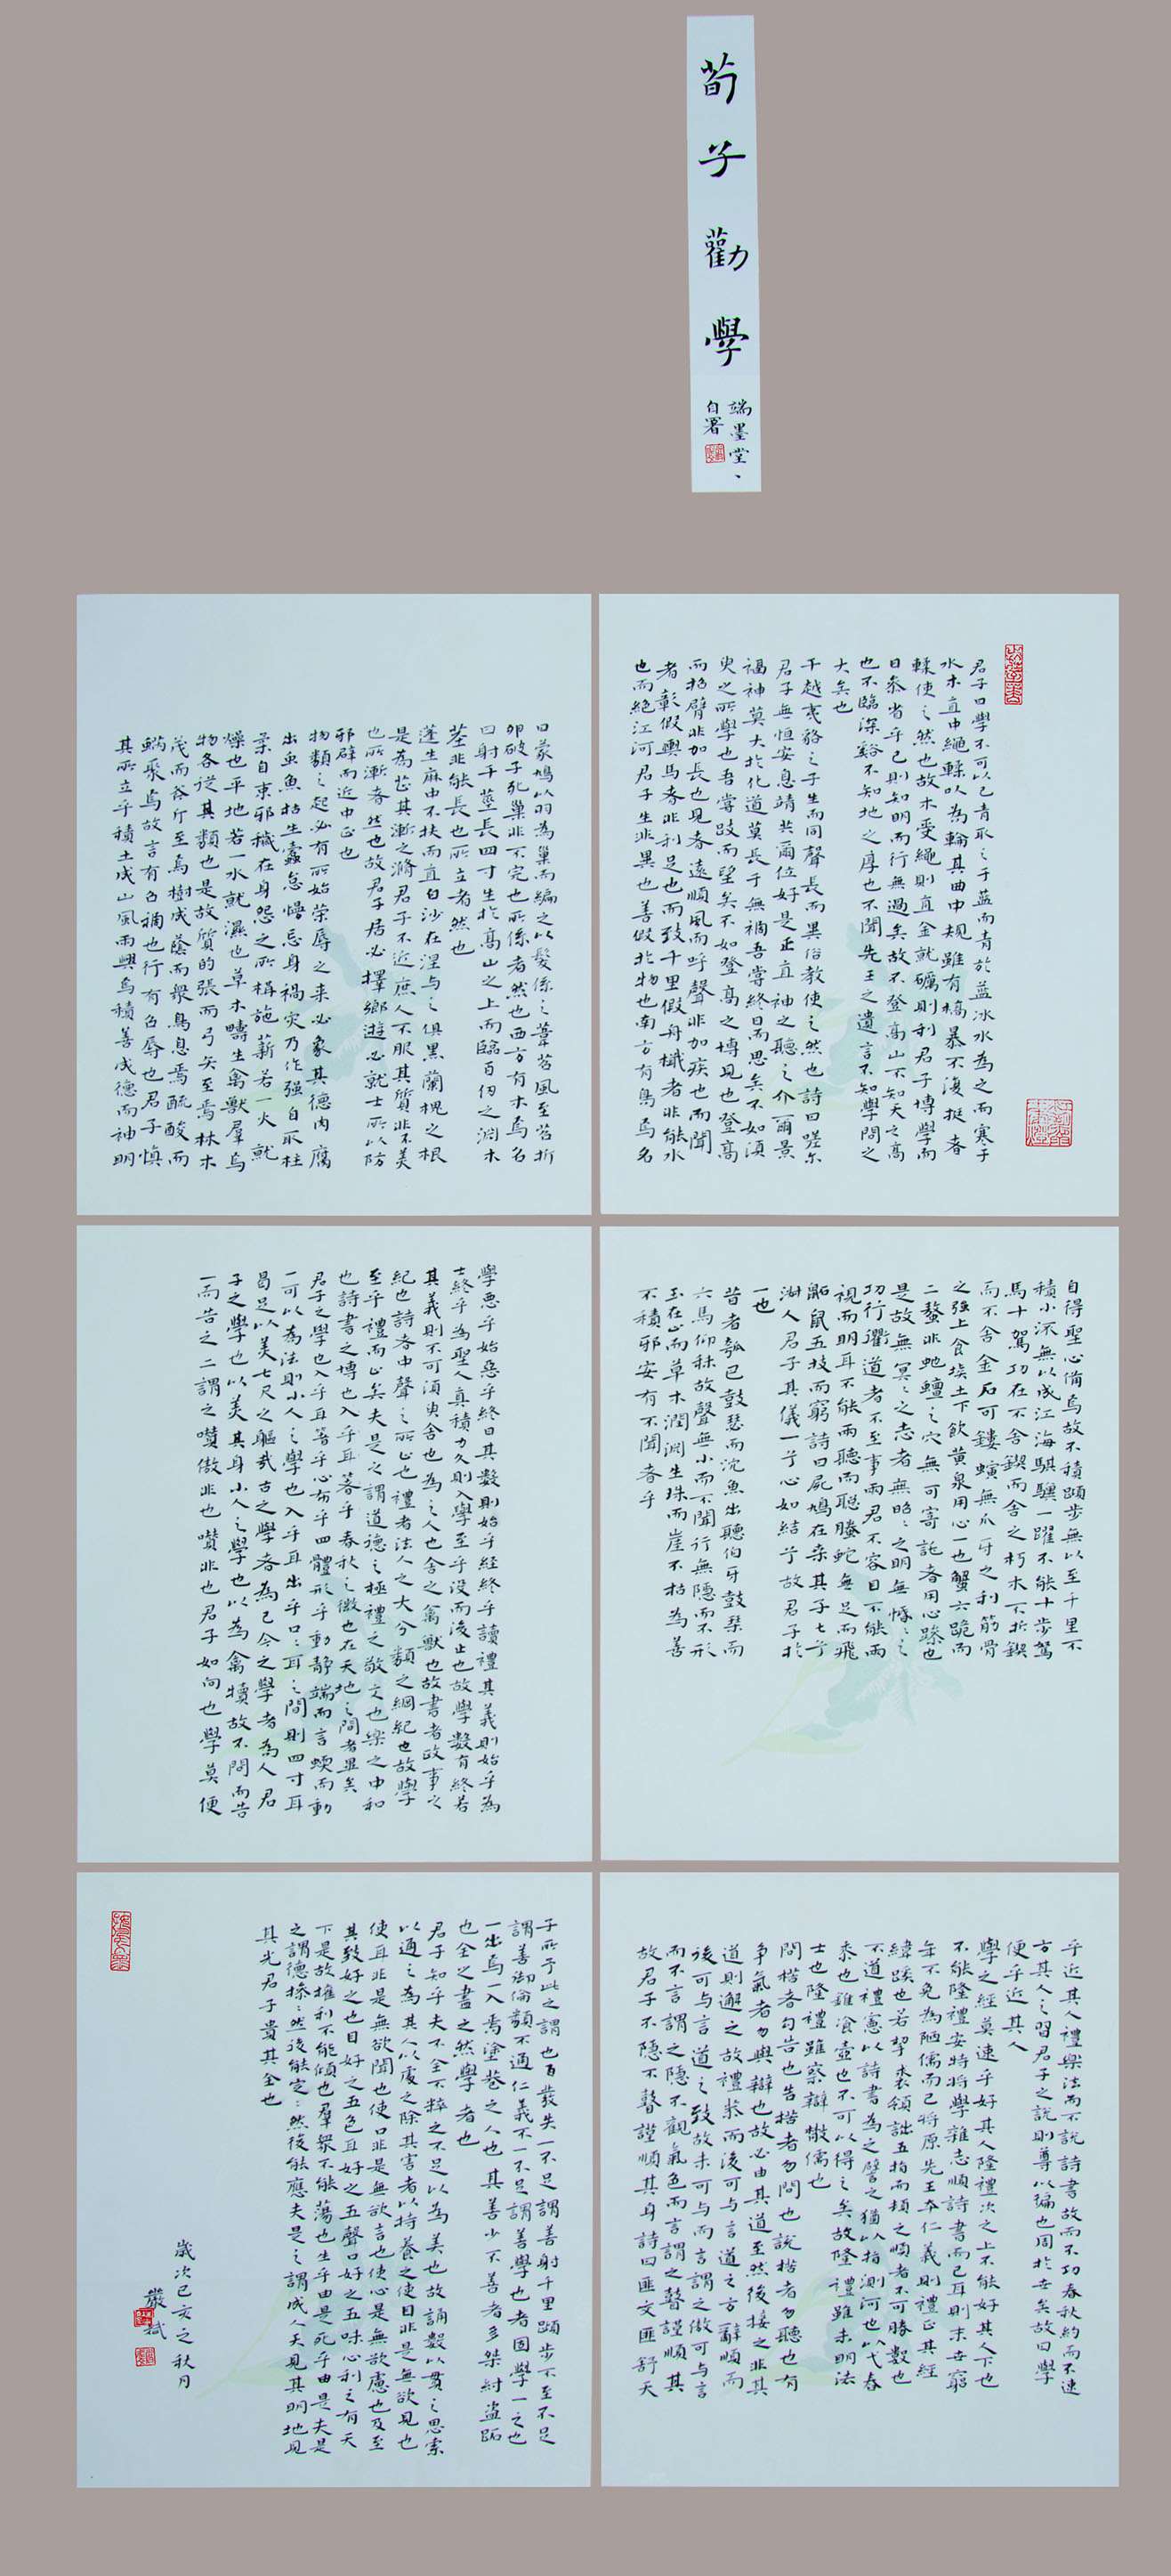 荀子勸學
端墨堂、
自署
君子曰學不可以已青取之于藍而青於藍冰水為之而寒于
水木直中繩輮以為輪其曲中規雖有槁暴不復挺者
輮使之然也故木受繩則直金就礪則利君子博學而
日參省乎己則知明而行無過矣故不登高山不知天之高
也不臨深谿不知地之厚也不聞先王之遺言不知學問之
大矣也
干越夷貉之子生而同聲長而異俗教使之然也詩曰嗟尔
君子無恒安息靖共爾位好是正直神之聽之介爾景
福神莫大於化道莫長于無禍吾嘗終日而思矣不如須
臾之所學也吾嘗跂而望矣不如登高之博見也登高
而招臂非加長也見者遠順風而呼聲非加疾也而聞
者彰假輿馬者非利足也而致千里假舟檝者非能水
也而絕江河君子生非異也善假於物也南方有鳥焉名
曰蒙鳩以羽為巢而編之以髮係之葦苕風至苕折
卵破子死巢非不完也所係者然也西方有木焉名
曰射干莖長四寸生於高山之上而臨百仞之淵木
莖非能長也所立者然也
蓬生麻中不扶而直白沙在涅与之俱黑蘭槐之根
是為芷其漸之滫君子不近庶人不服其質非不美
也所漸者然也故君子居必擇鄉遊必就士所以防
邪辟而近中正也
物類之起必有所始榮辱之来必象其德肉腐
出虫魚枯生蠹怠慢忘身禍災乃作強自取柱
柔自束邪穢在身怨之所構施薪若一火就
燥也平地若一水就濕也草木疇生禽獸羣焉
物各從其類也是故質的張而弓矢至焉林木
茂而斧斤至焉樹成蔭而衆鳥息焉醯酸而
蜹聚焉故言有召禍也行有召辱也君子慎
其所立乎積土成山風雨興焉積善成德而神明
自得聖心備焉故不積蹞步無以至千里不
積小流無以成江海騏驥一躍不能十步駑
馬十駕功在不舍鍥而舍之朽木不折鍥
而不舍金石可鏤螾無爪牙之利筋骨
之强上食埃土下飲黄泉用心一也蟹六跪而
二螯非虵蟺之穴無可寄託者用心躁也
是故無冥冥之志者無昭昭之明無惛惛之
功行衢道者不至事兩君不容目不能兩
視而明耳不能兩聽而聡螣蛇無足而飛
鼫鼠五技而窮詩曰尸鳩在桑其子七兮
淑人君子其儀一兮心如結兮故君子於
一也
昔者瓠巴鼓瑟而沈魚出聽伯牙鼓琴而
六馬仰秣故聲無小而不聞行無隱而不形
玉在山而草木潤淵生珠而崖不枯為善
不積邪安有不聞者乎
學恶乎始惡乎終曰其數則始乎経終乎讀禮其義則始乎為
士終乎為聖人真積力久則入學至乎没而後止也故學數有終若
其義則不可須臾舍也為之人也舍之禽獸也故書者政事之
紀也詩者中聲之所止也禮者法之大分類之綱紀也故學
至乎禮而止矣夫是之謂道德之極禮之敬文也樂之中和
也詩書之博也春秋之微也在天地之間者畢矣
君子之學也入乎耳著乎心布乎四體形乎動靜端而言蝡而動
一可以為法則小人之學也入乎耳出乎口口耳之間則四寸耳
曷足以美七尺之軀哉古之學者為己今之學者為人君
子之學也以美其身小人之學也以為禽犢故不問而告
一而告之二謂之囋傲非也囋非也君子如向也學莫便
乎近其人禮樂法而不說詩書故而不切春秋約而不速
方其人之習君子之說則尊以徧也周於世矣故曰學
便乎近其人
學之経莫速乎好其人隆禮次之上不能好其人下也
不能隆禮安特將學雜志順詩書而已耳則末世窮
年不免為陋儒而已將原先王本仁義則禮正其經
緯蹊也若挈裘領詘五指而頓之順者不可勝數也
不道禮憲以詩書為之譬之猶以指測河也以戈舂
黍也以錐飡壺也不可以得之矣故隆禮雖未明法
士也隆禮雖察辯散儒也
問楛者勿告也告楛者勿問也說楛者勿聽也有
争氣者勿與辯也故必由其道至然後接之非其
道則避之故禮恭而後可与言道之方辭順而
後可与言道之致故未可与而言謂之傲可与言
而不言謂之隱不觀氣色而言謂之瞽謹順其
故君子不隱不瞽謹順其身詩曰匪交匪舒天
子所予此之謂也百發失一不足謂善射千里蹞步不至不足
謂善御倫類不通仁義不一不足謂善學也者固學一之也
一出焉一入焉塗巷之人也其善少不善者多桀紂盗跖
也全之盡之然學者也
君子知乎夫不全不粹之不足以為美也故誦數以貫之思索
以通之為其人以處之除其害者以持養之使目非是無欲見也
使耳非是無欲聞也使口非是無欲言也使心是無欲慮也及至
其致好之也目好之五色耳好之五聲口好之五味心利之有天
下是故權利不能傾也羣衆不能蕩也生乎由是死乎由是夫是
之謂德操德操然後能定能定然後能應夫是之謂成人天見其明地見
其光君子貴其全也
歲次己亥之秋月
嚴軾